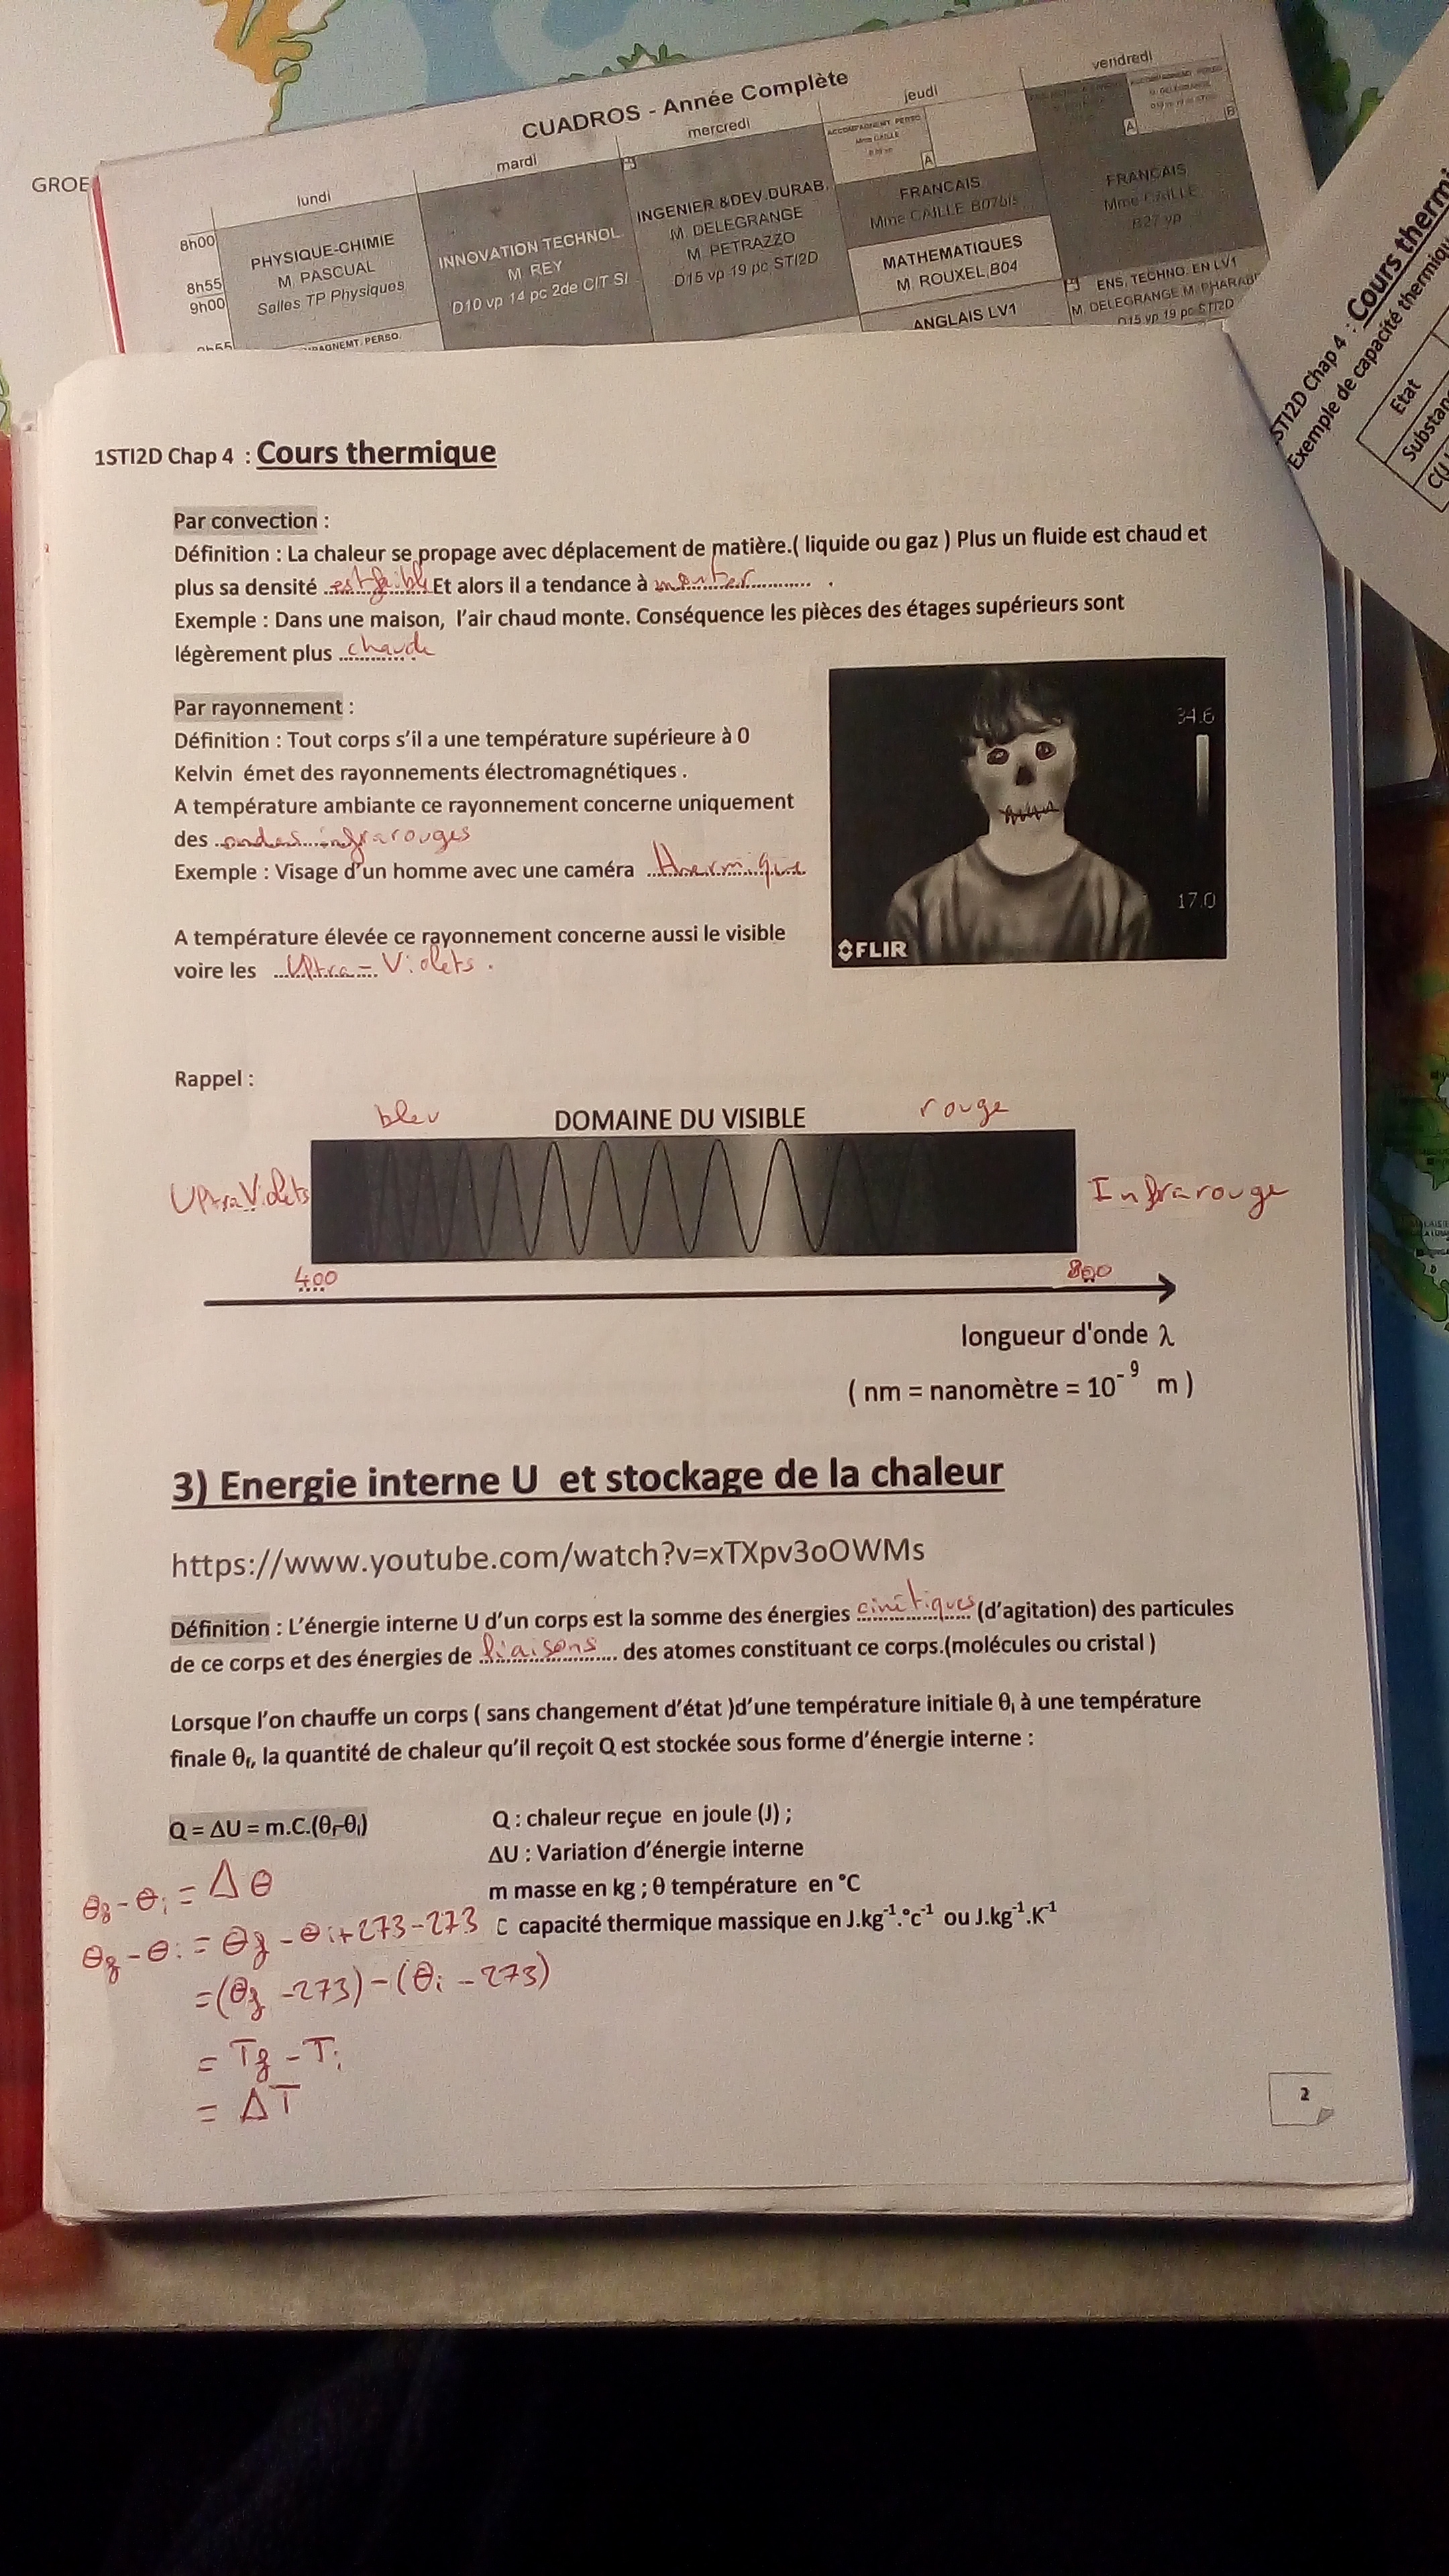 CUADROS - Année Complète
lundi
mardi
mercredi
jeudi
vendredi
GROE
8h00
8h55
9h00
PHYSIQUE-CHIMIE
M. PASCUAL
Salles TP Physiques
INNOVATION TECHNOL.
M. REY
D10 vp 14 pc 2de CIT SI
INGENIER.&DEV.DURAB.
M. DELEGRANGE
M. PETRAZZO
D15 vp 19 pc STI2D
ACCOMPAGNEMT. PERSO.
Mme CAILLE
A
FRANCAIS
Mme CAILLE B07bis
MATHEMATIQUES
M. ROUXEL,B04
ANGLAIS LV1
A
B
FRANCAIS
Mme CAILLE
B27 vp
ENS. TECHNO. EN LV1
M. DELEGRANGE M. PHARAB
D15 vp 19 pc STI2D
AGNEMT. PERSO.
STI2D Chap 4 : Cours thermi
Exemple de capacité thermiqu
Etat
Substan
1STI2D Chap 4 : Cours thermique
Par convection :
Définition : La chaleur se propage avec déplacement de matière.( liquide ou gaz ) Plus un fluide est chaud et
plus sa densité est faible Et alors il a tendance à monter .
Exemple : Dans une maison, l'air chaud monte. Conséquence les pièces des étages supérieurs sont
légèrement plus chaude
Par rayonnement :
Définition : Tout corps s'il a une température supérieure à 0
Kelvin émet des rayonnements électromagnétiques .
A température ambiante ce rayonnement concerne uniquement
des ondes infrarouges
Exemple : Visage d'un homme avec une caméra thermique
A température élevée ce rayonnement concerne aussi le visible
voire les Ultra-Violets .
34.6
17.0
FLIR
Rappel :
bleu DOMAINE DU VISIBLE rouge
UltraViolets
Infrarouge
400 800
longueur d'onde λ
( nm = nanomètre = 10⁻⁹ m )
3) Energie interne U et stockage de la chaleur
https://www.youtube.com/watch?v=xTXpv3oOWMs
Définition : L'énergie interne U d'un corps est la somme des énergies cinétiques (d'agitation) des particules
de ce corps et des énergies de liaisons des atomes constituant ce corps.(molécules ou cristal )
Lorsque l'on chauffe un corps ( sans changement d'état )d'une température initiale θi à une température
finale θf, la quantité de chaleur qu'il reçoit Q est stockée sous forme d'énergie interne :
Q = ΔU = m.C.(θf-θi)
Q : chaleur reçue en joule (J) ;
ΔU : Variation d'énergie interne
m masse en kg ; θ température en °C
C capacité thermique massique en J.kg⁻¹.°c⁻¹ ou J.kg⁻¹.K⁻¹
θf - θi = Δθ
θf - θi = θf - θi + 273 - 273
= (θf - 273) - (θi - 273)
= Tf - Ti
= ΔT
2